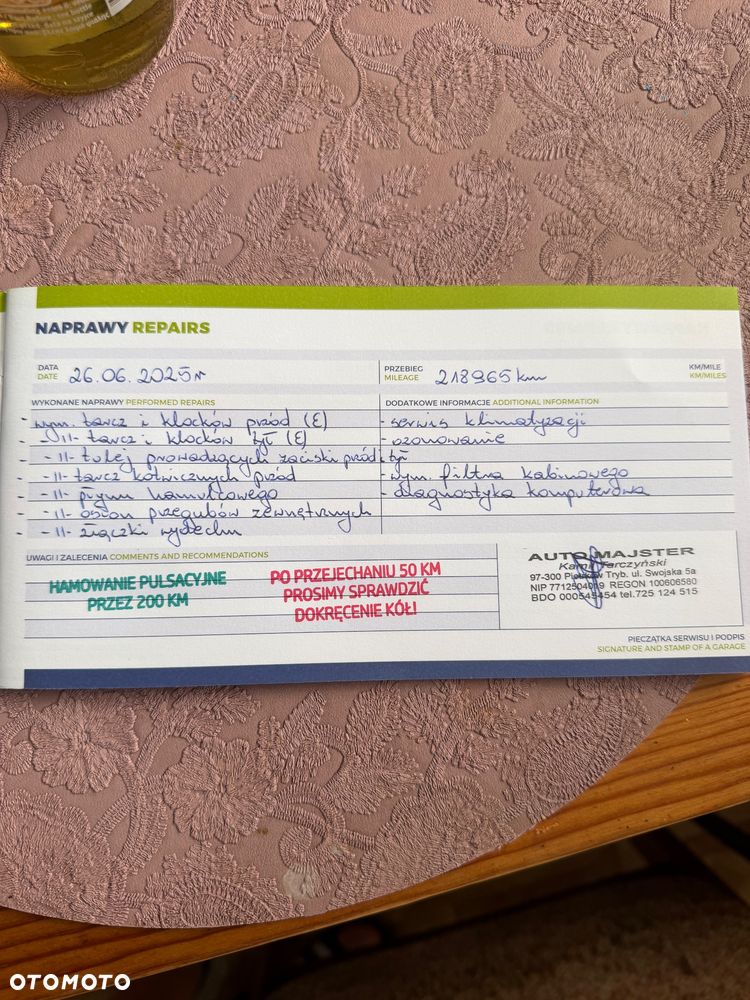 NAPRAWY REPAIRS
DATA
DATE
26.06.2025r
PRZEBIEG
MILEAGE
218965 km
KM/MILE
KM/MILES
WYKONANE NAPRAWY PERFORMED REPAIRS
- wym. tarcz i klocków przód (E)
- -11- tarcz i klocków tył (E)
- -11- tulej prowadzących zaciski przód i tył
- -11- tarcz kotwicznych przód
- -11- płynu hamulcowego
- -11- osłon przegubów zewnętrznych
- -11- złączki wydechu
DODATKOWE INFORMACJE ADDITIONAL INFORMATION
- serwis klimatyzacji
- ozonowanie
- wym. filtra kabinowego
- diagnostyka komputerowa
UWAGI I ZALECENIA COMMENTS AND RECOMMENDATIONS
HAMOWANIE PULSACYJNE
PRZEZ 200 KM
PO PRZEJECHANIU 50 KM
PROSIMY SPRAWDZIĆ
DOKRĘCENIE KÓŁ!
AUTO MAJSTER
Kamil Tarczyński
97-300 Piotrków Tryb. ul. Swojska 5a
NIP 7712504009 REGON 100606580
BDO 000545454 tel.725 124 515
PIECZĄTKA SERWISU I PODPIS
SIGNATURE AND STAMP OF A GARAGE
OTOMOTO